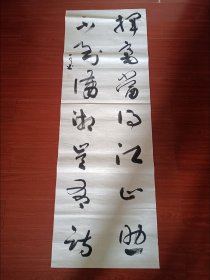 揮毫當得江山助
不到瀟湘豈有詩